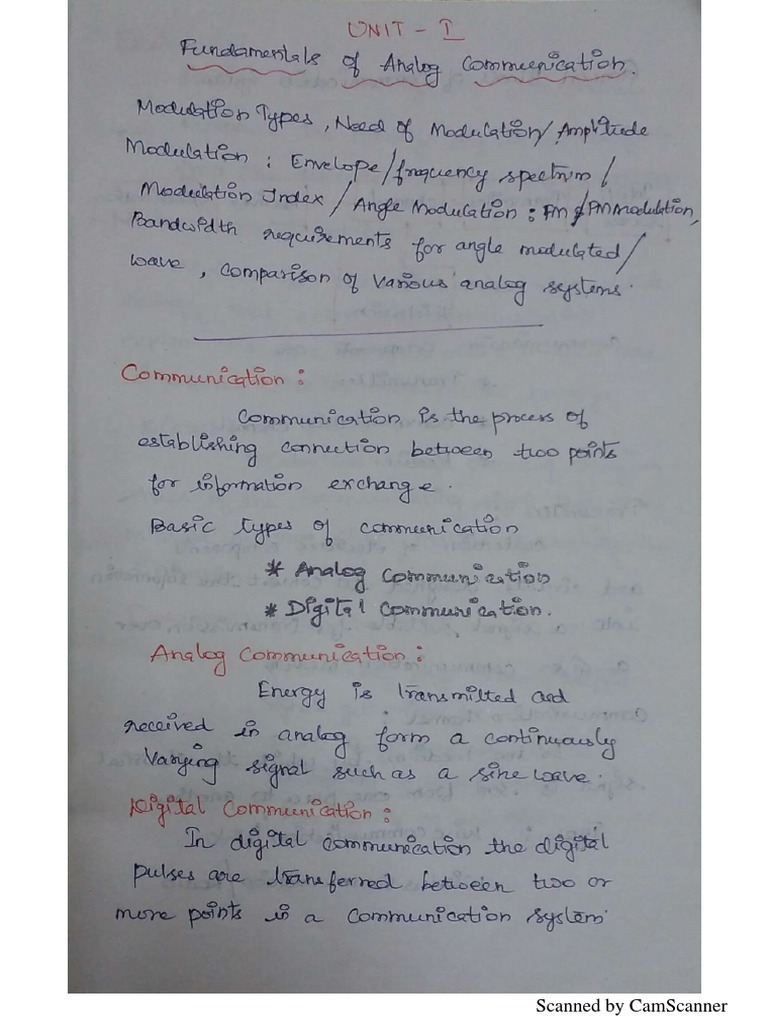 UNIT - I
Fundamentals of Analog Communication.
Modulation Types, Need of Modulation/Amplitude
Modulation : Envelope/frequency spectrum/
Modulation Index / Angle Modulation : FM & PM modulation,
Bandwidth requirements for angle modulated/
wave, comparison of various analog systems.
Communication :
Communication is the process of
establishing connection between two points
for information exchange.
Basic types of communication
* Analog Communication
* Digital Communication.
Analog Communication :
Energy is transmitted and
received in analog form a continuously
varying signal such as a sine wave.
Digital Communication :
In digital communication the digital
pulses are transferred between two or
more points in a communication system.
Scanned by CamScanner